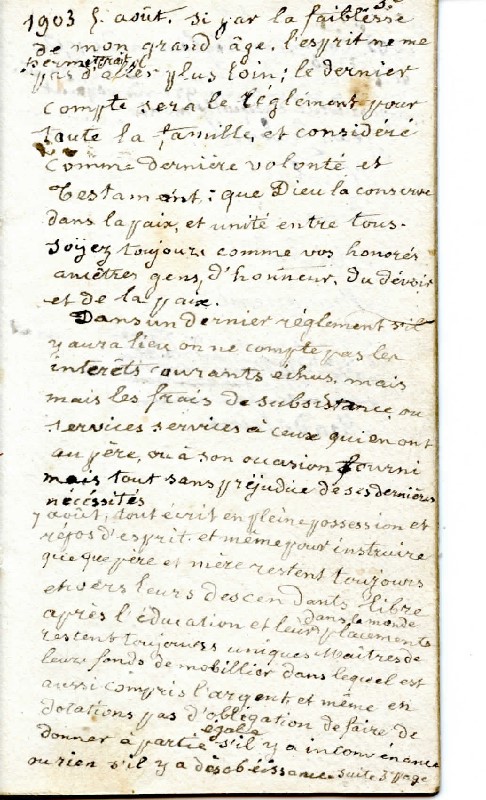 1903 5. août. si par la faiblesse
de mon grand âge, l'esprit ne me
permettrait
pas d'aller plus loin; le dernier
compte sera le réglement pour
toute la famille, et considéré
comme dernière volonté et
Testament: que Dieu la conserve
dans la paix, et unité entre tous.
Soÿez toujours comme vos honorés
ancêtres gens, d'honneur, du dévoir
et de la paix.
Dans un dernier réglement s'il
y aura lieu on ne compte pas les
intérêts courants échus, mais
mais les frais de subsistance, ou
services services à ceux qui en ont
au père, ou à son occasion fourni
mais tout sans préjudice de ses dernières
nécéssités
7 août, tout ecrit en pleine possession et
répos d'esprit. et même pour instruire
que que père et mère restent toujours
envers leurs descendants, libre
dans le monde
après l'éducation et leur placements
restent toujours uniques Maîtres de
leurs fonds de mobillier dans lequel est
aussi compris l'argent, et même en
dotations pas d'obligation de faire de
égale
donner à partie s'il y a inconvénance
ou rien s'il y a désobéissance suite 3e page